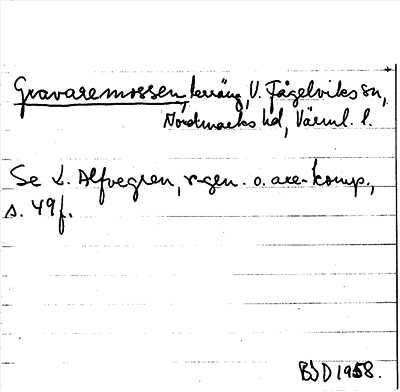 Gravaremossen, terräng, V. Fågelviks sn,
Nordmarks hd, Värml. l.
Se L. Alfvegren, r-gen. o. are-komp.,
s. 49 f.
BJD 1958.